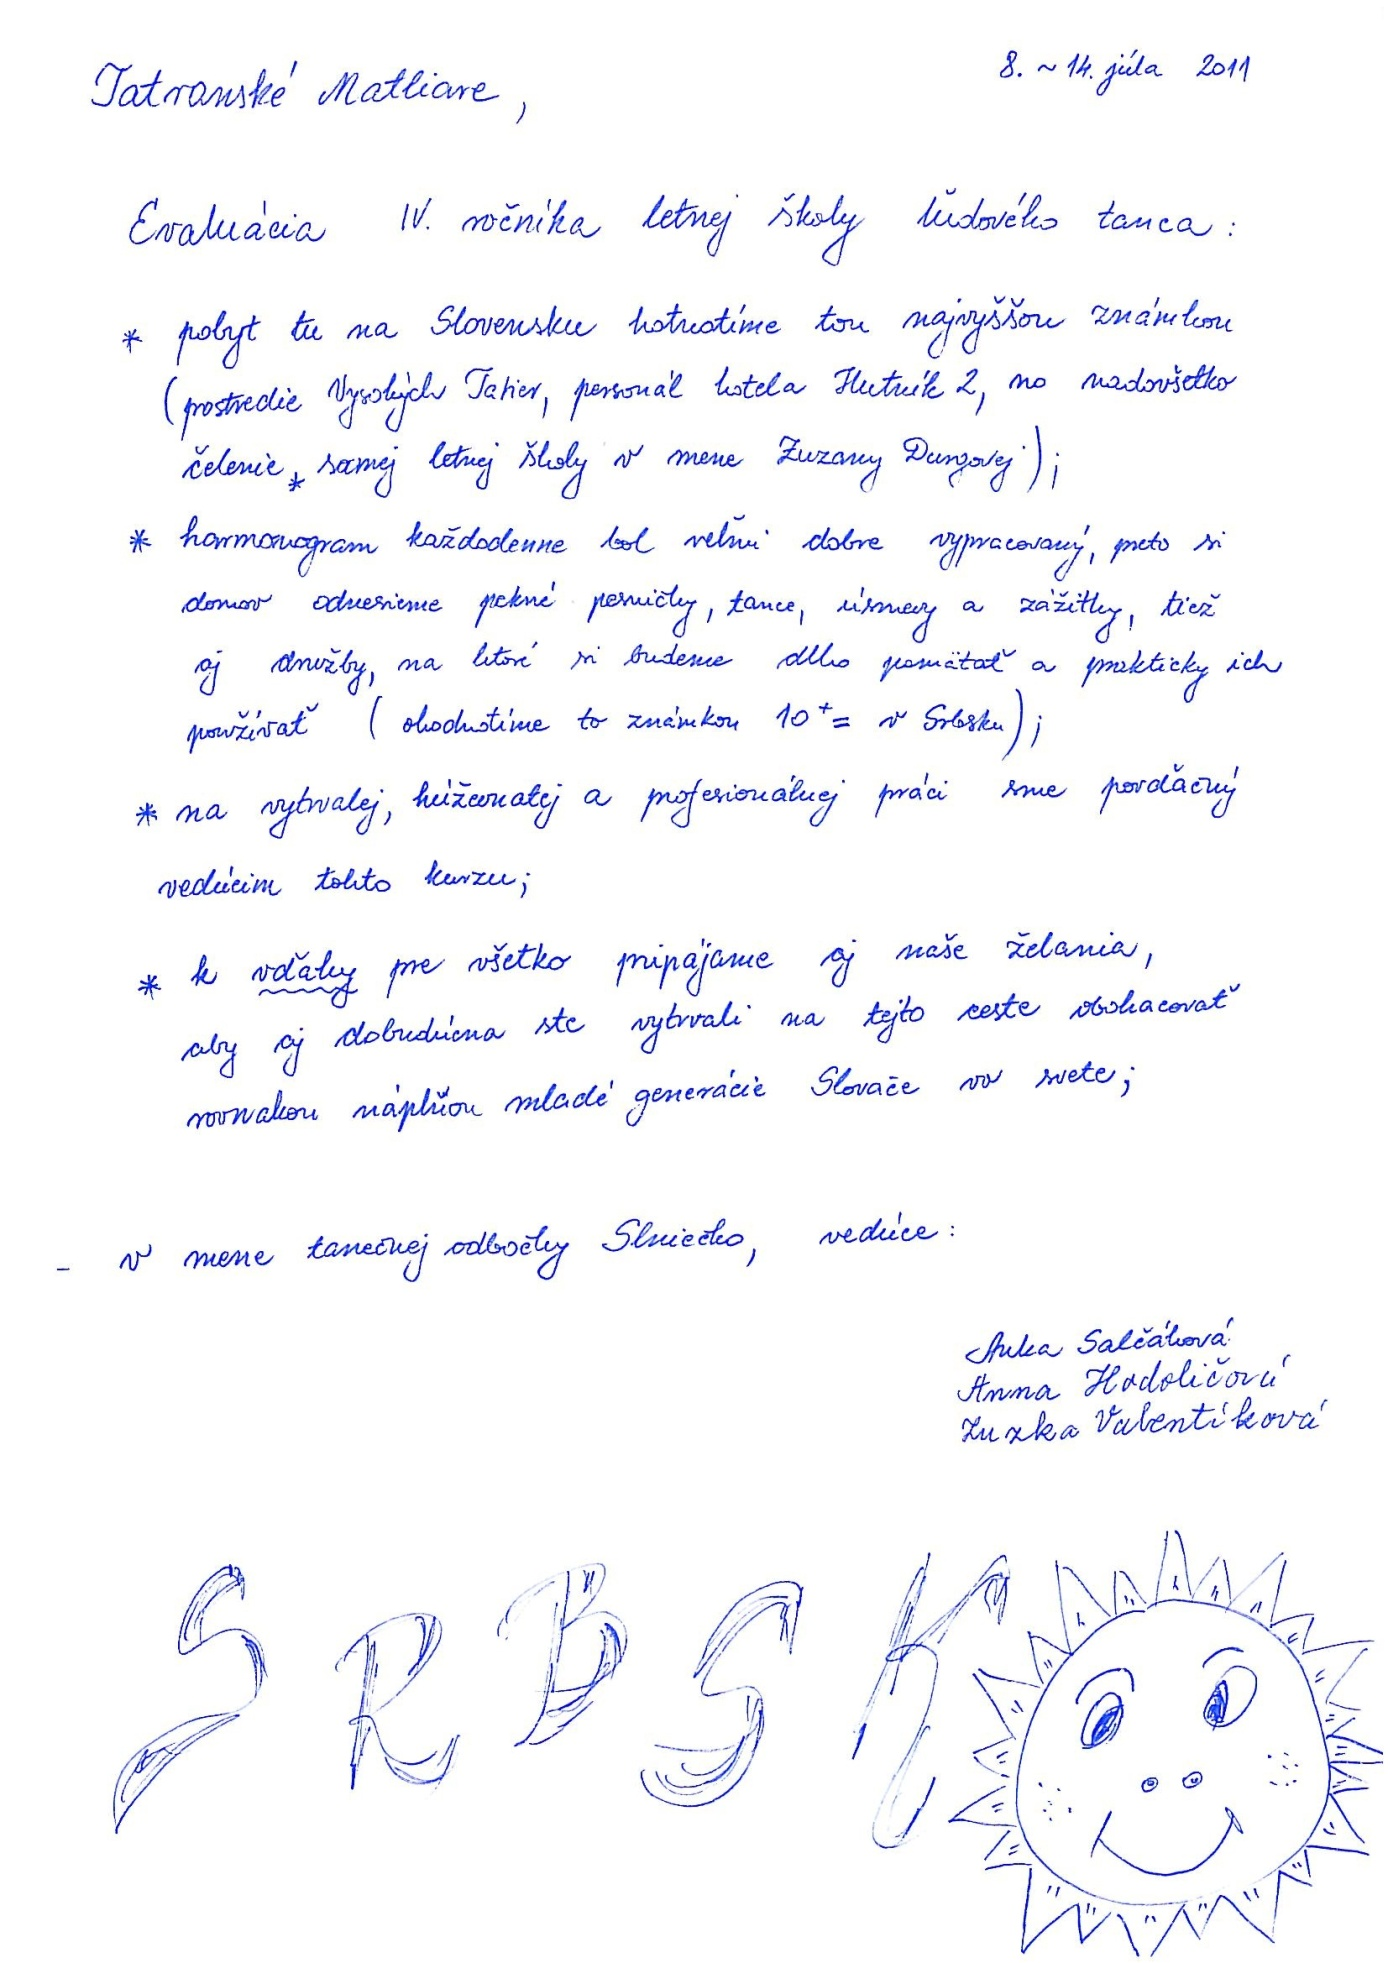 Tatranské Matliare, 8. ~ 14. júla 2011
Evaluácia IV. ročníka letnej školy ľudového tanca:
* pobyt tu na Slovensku hotnotíme tou najvyššou známkou
(prostredie Vysokých Tatier, personál hotela Hutník 2, no nadovšetko
čelenie * samej letnej školy v mene Zuzany Dungovej);
* harmonogram každodenne bol veľmi dobre vypracovaný, preto si
domov odnesieme pekné pesničky, tance, úsmevy a zážitky, tiež
aj družby, na ktoré si budeme dlho pamätať a prakticky ich
používať (ohodnotíme to známkou 10+= v Srbsku);
* na vytrvalej, húževnatej a profesionálnej práci sme povďačný
vedúcim tohto kurzu;
* k vďaky pre všetko pripájame aj naše želania,
aby aj dobudúcna ste vytrvali na tejto ceste obohacovať
rovnakou náplňou mladé generácie Slovače vo svete;
- v mene tanečnej odbočky Slniečko, vedúce:
Anka Salčáková
Anna Hodoličová
Zuzka Valentíková
SRBSKO